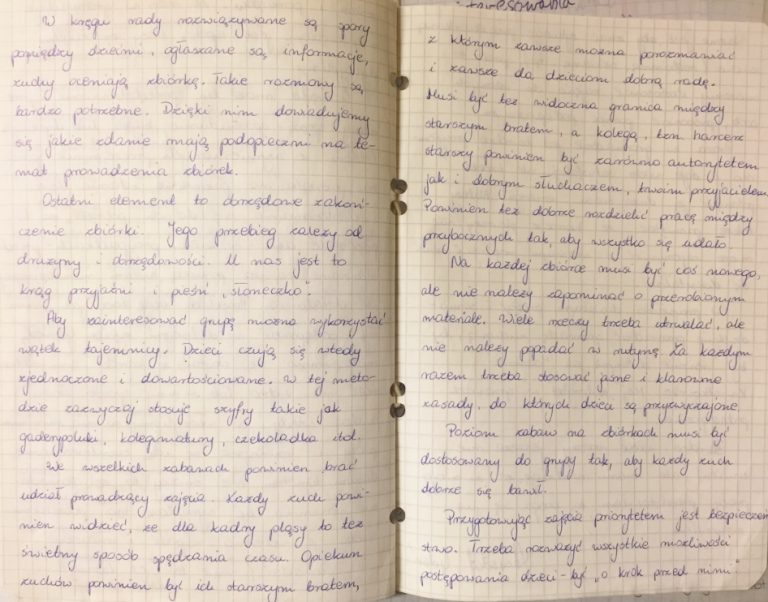 W kręgu rady rozwiązywane są spory
pomiędzy dziećmi, ogłaszane są informacje,
zuchy oceniają zbiórkę. Takie rozmowy są
bardzo potrzebne. Dzięki nim dowiadujemy
się jakie zdanie mają podopieczni na te-
mat prowadzenia zbiórek.
Ostatni element to obrzędowe zakoń-
czenie zbiórki. Jego przebieg zależy od
drużyny i obrzędowości. U nas jest to
krąg przyjaźni i pieśń „słoneczko".
Aby zainteresować grupę można wykorzystać
wątek tajemnicy. Dzieci czują się wtedy
zjednoczone i dowartościowane. W tej meto-
dzie zazwyczaj stosuję szyfry takie jak
gaderypoluki, czekoladka itd.
We wszelkich zabawach powinien brać
udział prowadzący zajęcia. Każdy zuch powi-
nien widzieć, że dla kadry pląsy to też
świetny sposób spędzania czasu. Opiekun
zuchów powinien być ich starszym bratem,
z którym zawsze można porozmawiać
i zawsze da dzieciom dobrą radę.
Musi być też widoczna granica między
starszym bratem, a kolegą, ten harcerz
starszy powinien być zarówno autorytetem
jak i dobrym słuchaczem, twoim przyjacielem.
Powinien też dobrze rozdzielić pracę między
przybocznych tak, aby wszystko się udało.
Na każdej zbiórce musi być coś nowego,
ale nie należy zapominać o przerobionym
materiale. Wiele rzeczy trzeba utrwalać, ale
nie należy popadać w rutynę. Za każdym
razem trzeba stosować jasne i klarowne
zasady, do których dzieci są przyzwyczajone.
Poziom zabaw na zbiórkach musi być
dostosowany do grupy tak, aby każdy zuch
dobrze się bawił.
Przygotowując zajęcia priorytetem jest bezpieczeń
stwo. Trzeba rozważyć wszystkie możliwości
postępowania dzieci - być „o krok przed nimi"